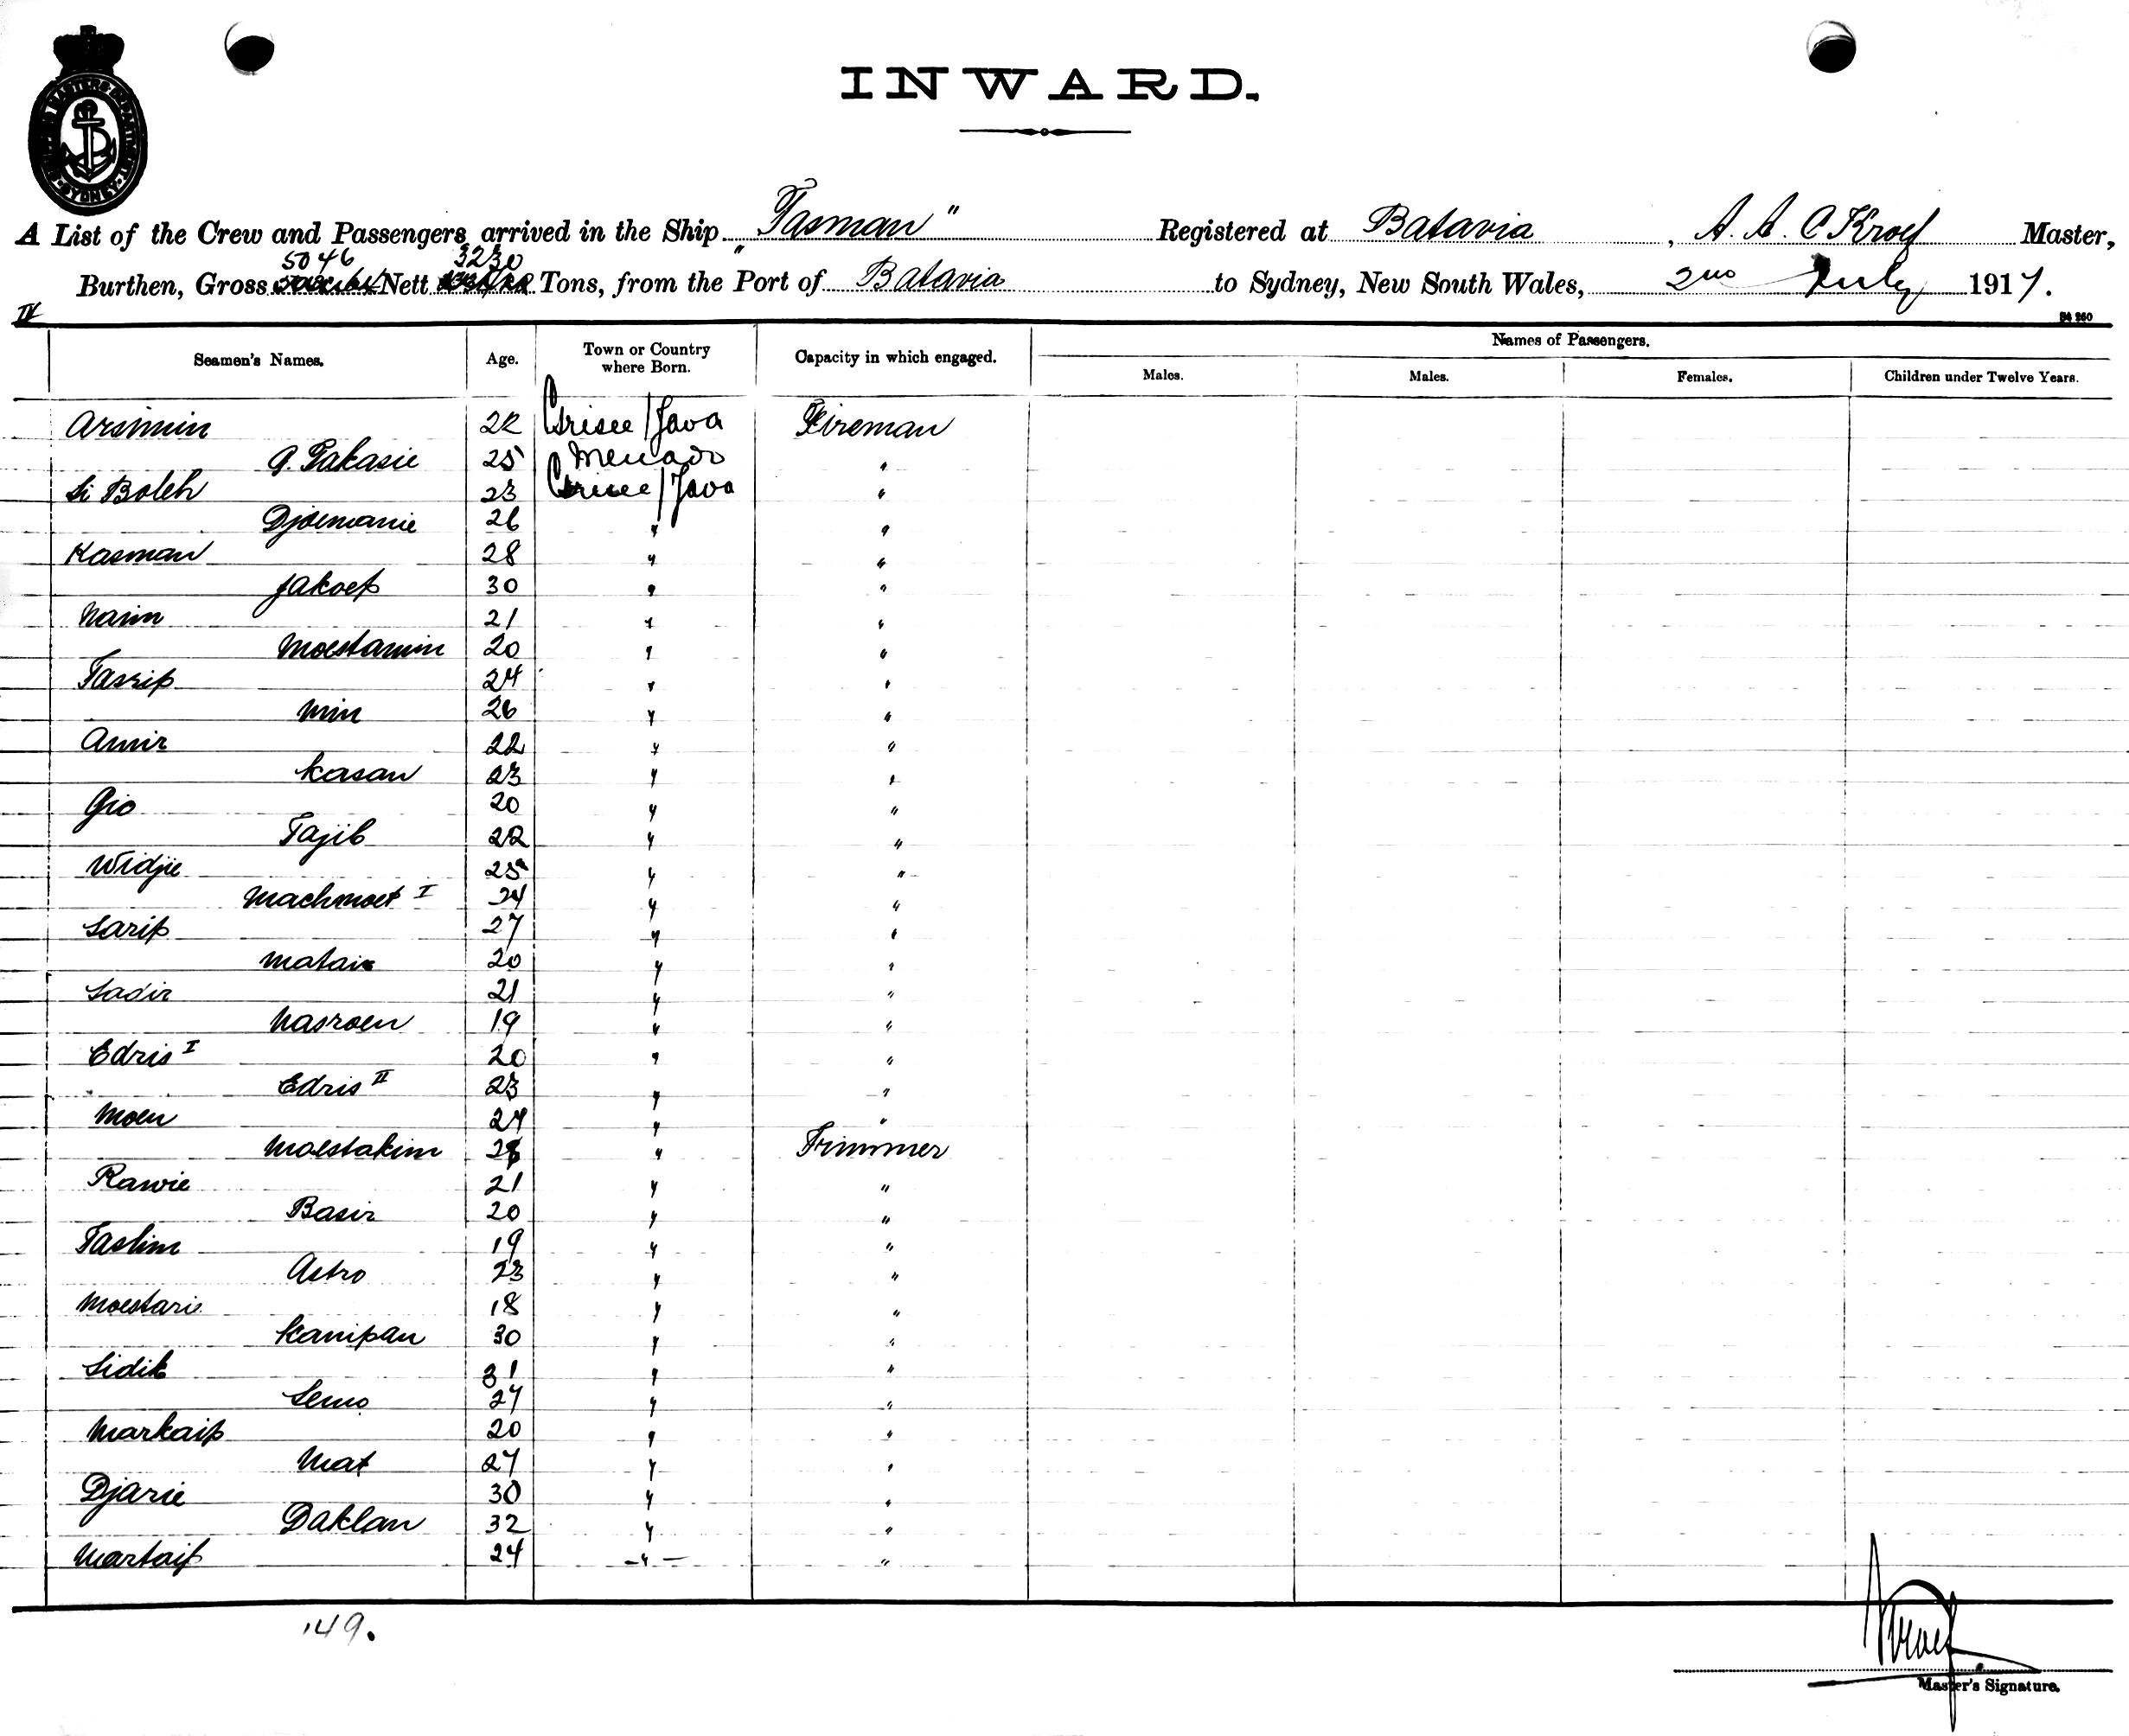 INWARD.
SHIPPING MASTERS DEPARTMENT SYDNEY
A List of the Crew and Passengers arrived in the Ship "Tasman" Registered at Batavia, A. A. C Kroef Master,
5046 3230
Burthen, Gross Nett Tons, from the Port of Batavia to Sydney, New South Wales, 2nd July 1917.
IV
Seamen's Names. Age. Town or Country where Born. Capacity in which engaged. Names of Passengers.
Males. Males. Females. Children under Twelve Years.
Arsimin 22 Grisee/Java Fireman
P. Pakasie 25 Menado "
Si Boleh 23 Grisee/Java "
Djoemanie 26 " "
Kasman 28 " "
Jakoep 30 " "
Naim 21 " "
Moestamin 20 " "
Tasrip 24 " "
Min 26 " "
Amir 22 " "
Kasan 23 " "
Gio 20 " "
Tajib 22 " "
Widjie 25 " "
Machmoet I 24 " "
Sarip 27 " "
Matair 20 " "
Sadir 21 " "
Nasroen 19 " "
Edris I 20 " "
Edris II 23 " "
Moen 24 " "
Moestakim 28 " Trimmer
Rawie 21 " "
Basir 20 " "
Taslim 19 " "
Astro 23 " "
Moestarie 18 " "
Kanipan 30 " "
Sidik 31 " "
Semo 27 " "
Markaip 20 " "
Mat 27 " "
Djarie 30 " "
Daklan 32 " "
Martaip 24 " "
149.
Kroef
Master's Signature.